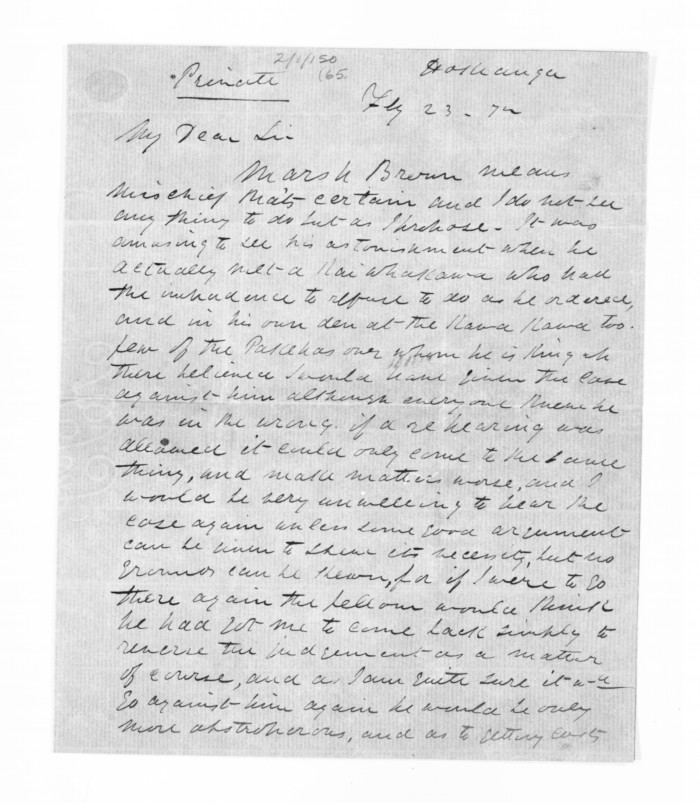 2/1/150
Private Hokianga
165.
Feby 23 - 72
My Dear Sir
Marsh Brown means
mischief that's certain and I do not see
any thing to do but as I propose - It was
amusing to see his astonishment when he
actually met a Kai Whakawa who had
the impudence to refuse to do as he ordered,
and in his own den at the Kawa Kawa too.
few of the Pakehas over whom he is King
there believed I would have given the case
against him although everyone knew he
was in the wrong. if a re hearing was
allowed it could only come to the same
thing, and make matters worse, and I
would be very unwilling to hear the
case again unless some good argument
can be given to shew its necessity, but no
grounds can be shewn, for if I were to go
there again the fellow would think
he had got me to come back simply to
reverse the judgement as a matter
of course, and as I am quite sure it
go against him again he would be only
more obstroperous, and as to getting costs